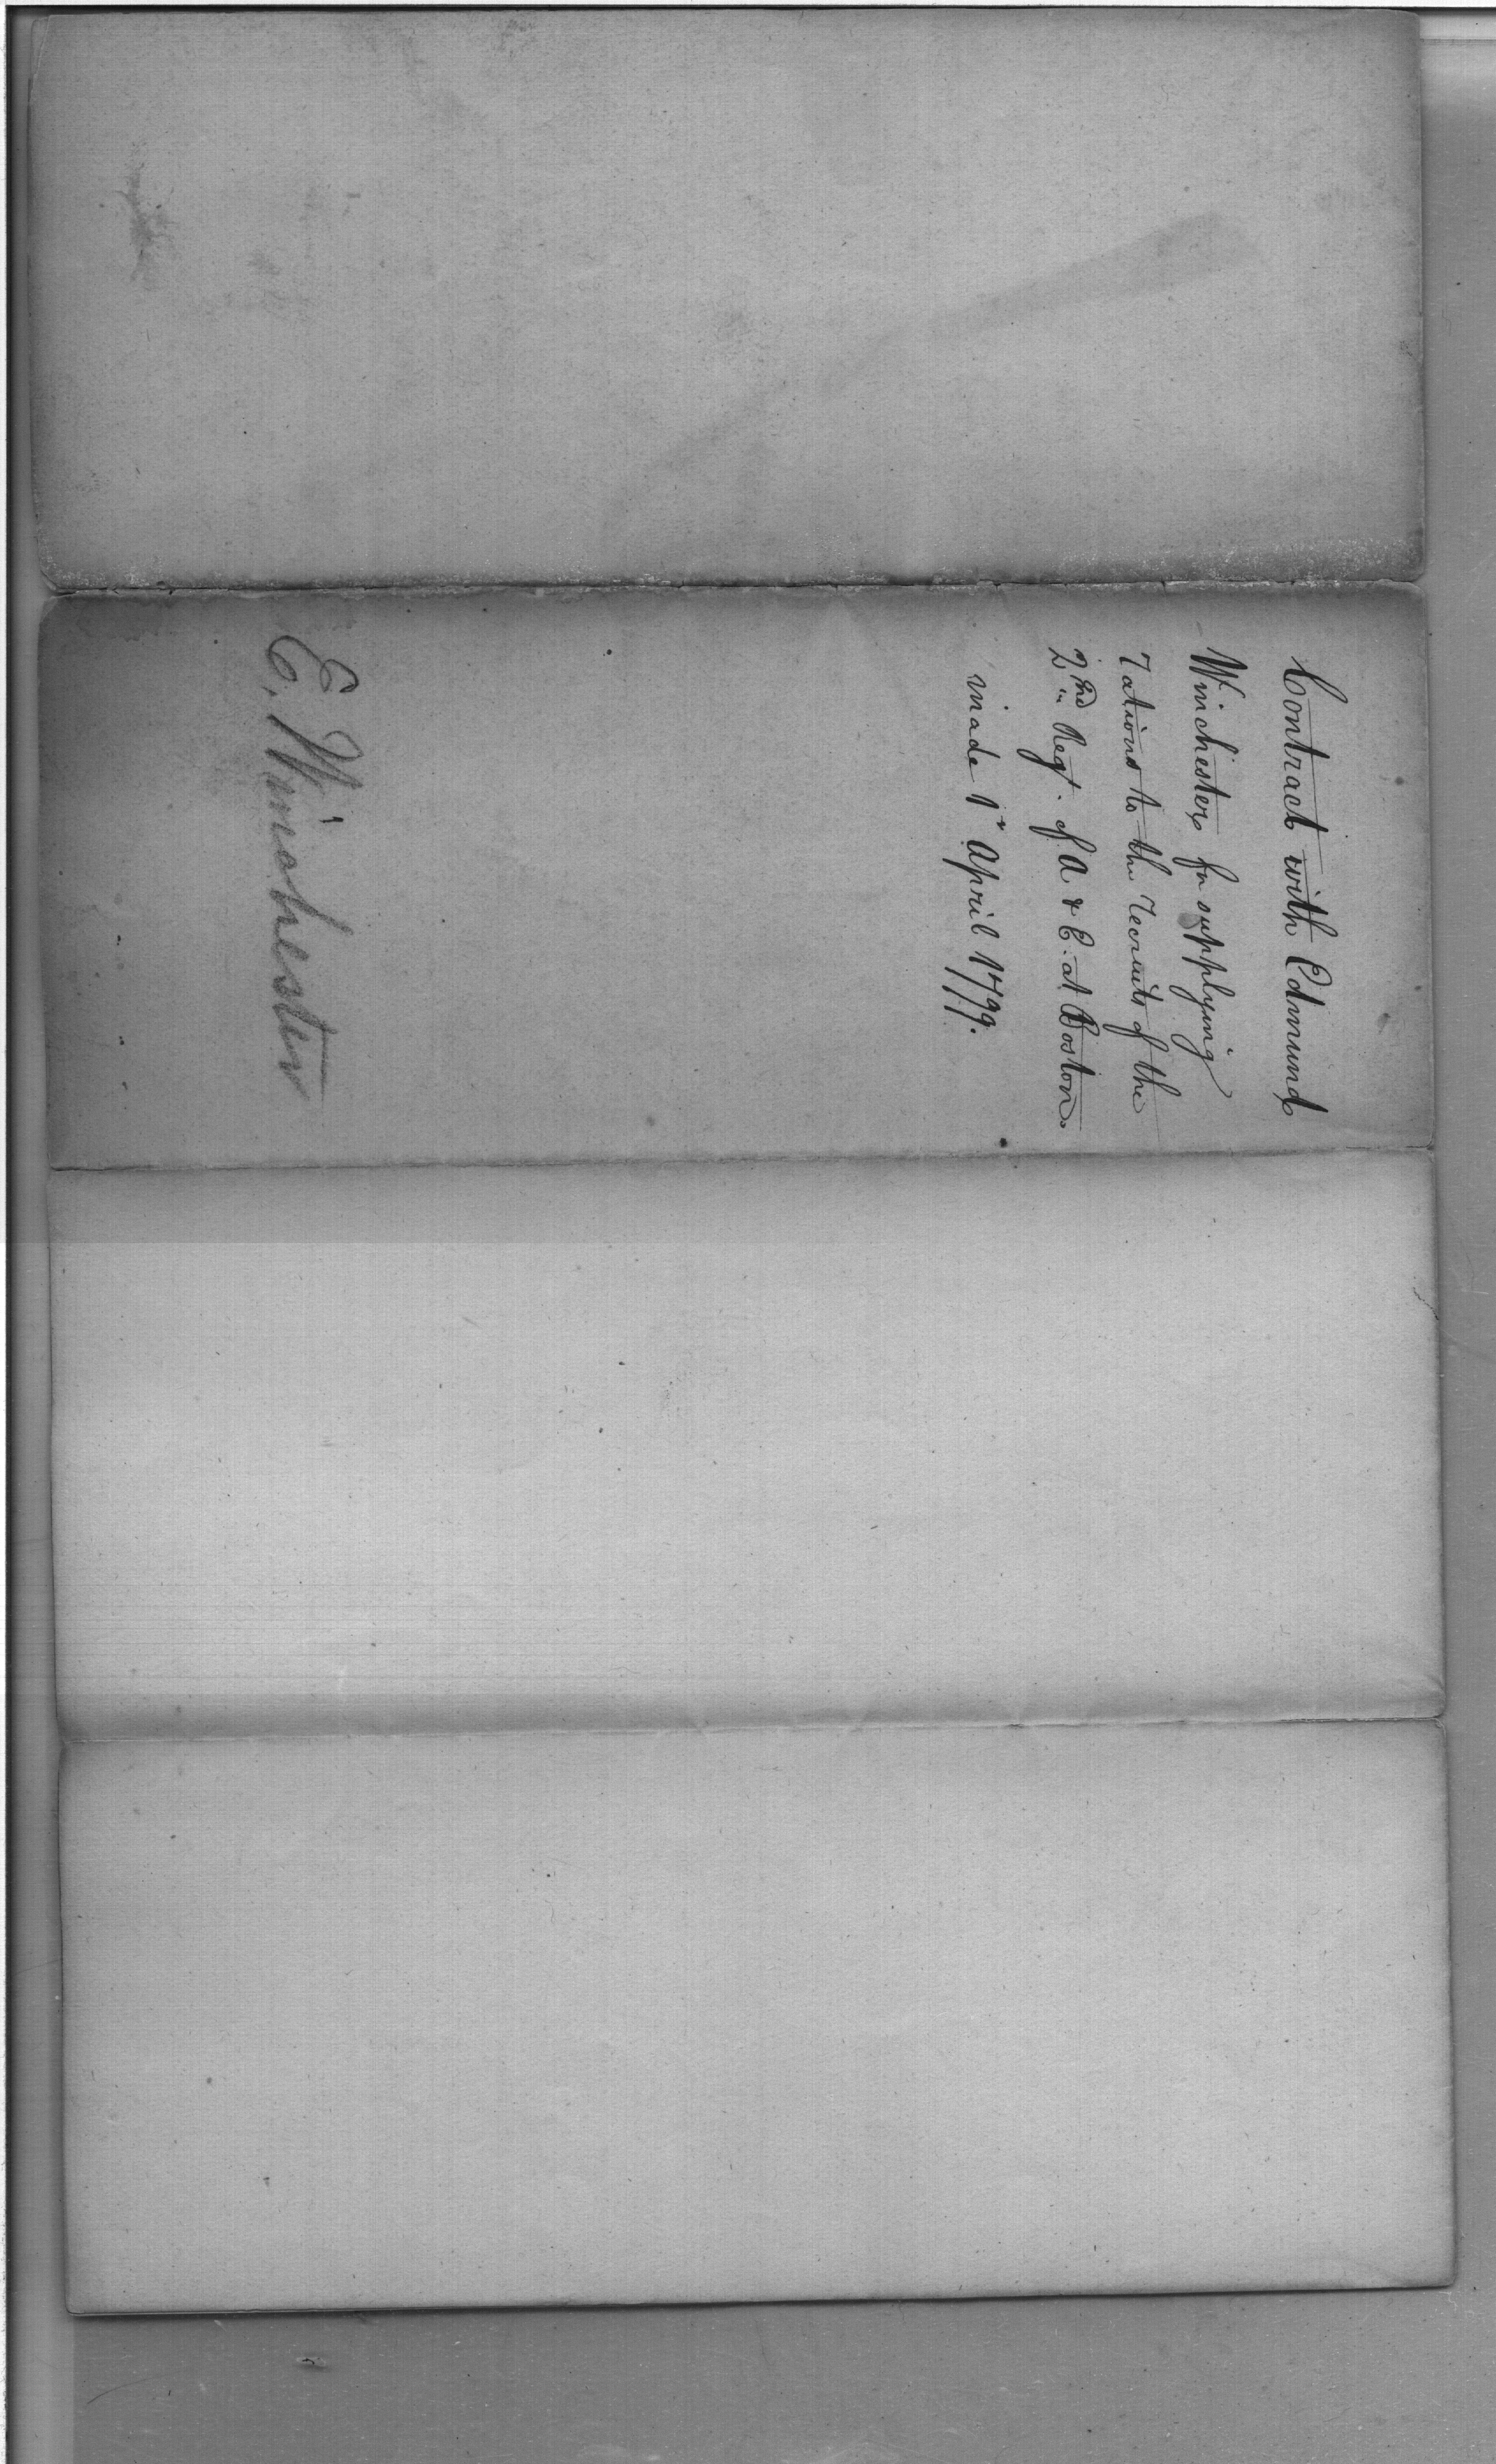 Contract with Edmund
Winchester for supplying
rations to the recruits of the
2nd Regt. of A & E. at Boston.
made 1st April 1799.
E. Winchester